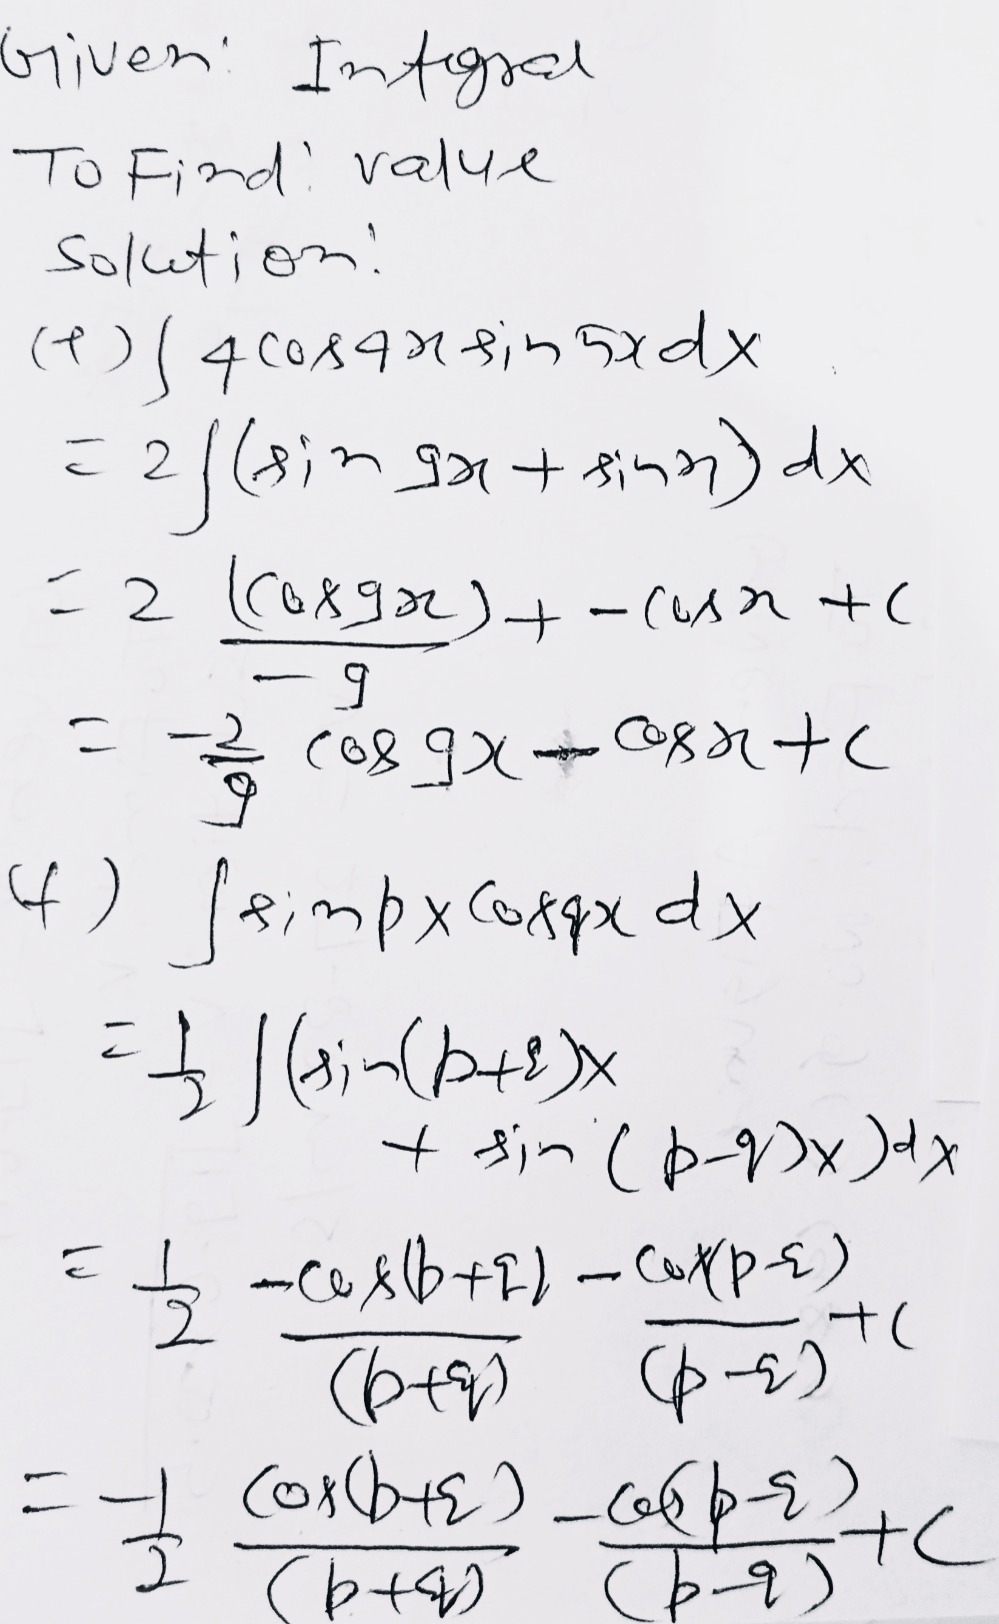 Given: Integral
To Find: value
Solution:
(e) ∫ 4 cos 4x sin 5x dx
= 2 ∫ (sin 9x + sin x) dx
= 2 (cos 9x)/-9 + - cos x + c
= -2/9 cos 9x - cos x + c
f) ∫ sin px cos qx dx
= 1/2 ∫ (sin (p+q)x
+ sin (p-q)x) dx
= 1/2 -cos(p+q)/(p+q) - cos(p-q)/(p-q) + c
= -1/2 cos(p+q)/(p+q) - cos(p-q)/(p-q) + c